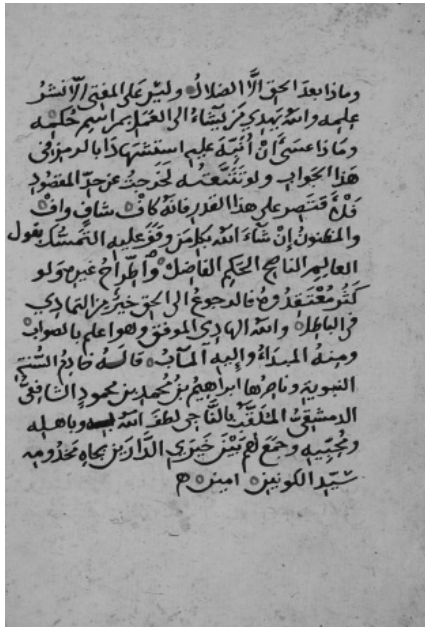 وماذا بعد الحق الّا الضلال وليس على المفتى الّا نشر
علمه والله يهدي من يشاء الى العمل بمراسم حكمه
وماذا عسى ان أنبّه عليه استشهادًا بالرمز في
هذا الجواب ولو تتبعته لخرجت عن حدّ المقصود
فلنقتصر على هذا القدر فانّه كافٍ شافٍ وافٍ
والمظنون إن شآء الله بكل من وقف عليه التمسّك بقول
العالم الناصح الحكم الفاضل واطّراح غيره ولو
كثر معتقدوه فالرجوع الى الحق خير من التمادي
في الباطل والله الهادي الموفق وهو اعلم بالصواب
ومنه المبدأ وإليه المآب قاله خادم السُنّة
النبوية وناصرها ابراهيم بن محمد بن محمود الشافعي
الدمشقي الملقّب بالنّاجي لطف الله به وباهله
ومحبّيه وجمع لهم بين خيري الدّارين بجاه مخدومه
سيّد الكونين امين